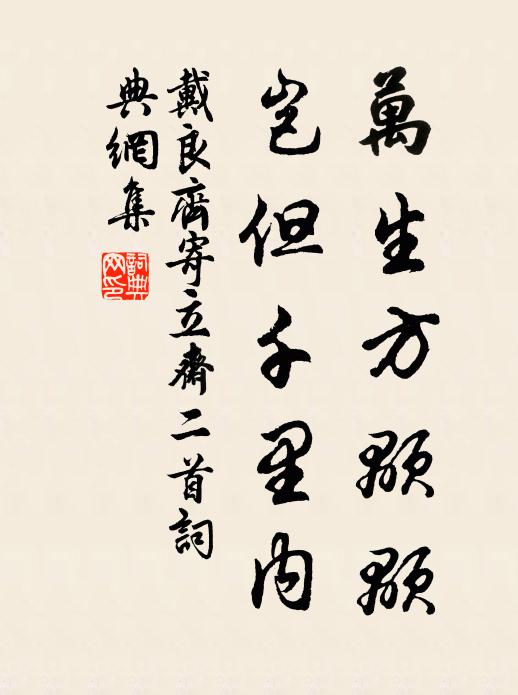 萬生方顒顒
豈但千里内
戴良齊寄立齋二首詞
典網集
詞典网印